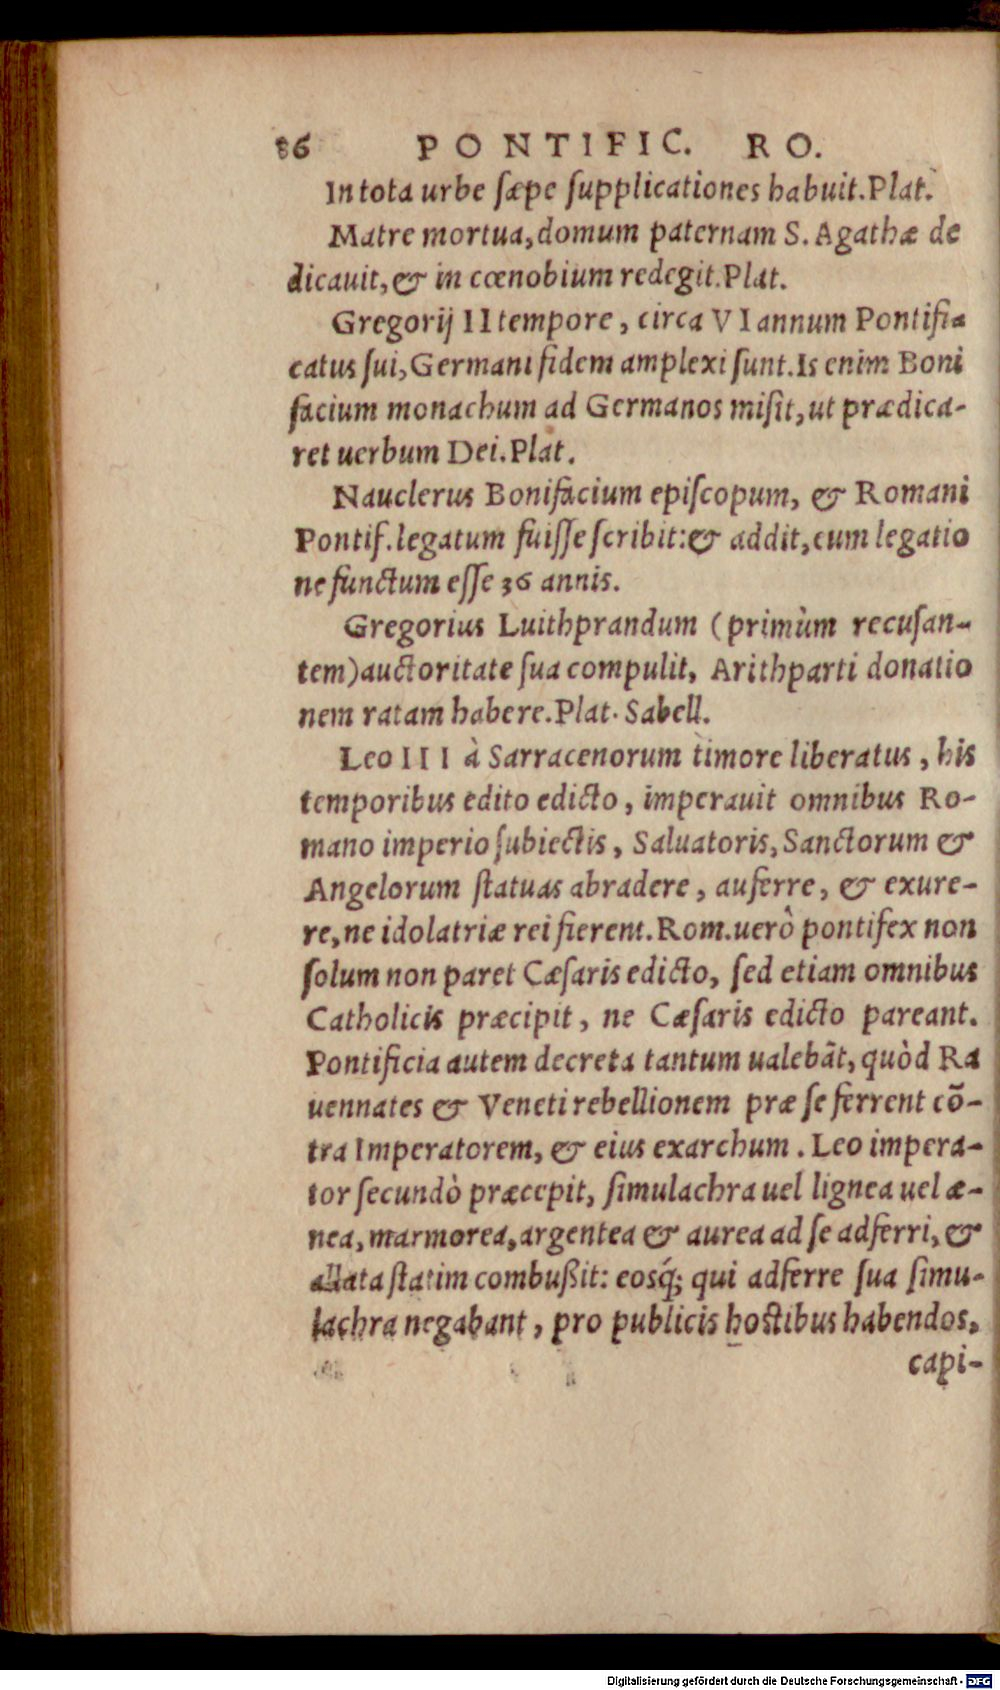 86 PONTIFIC. RO.
In tota urbe sæpe supplicationes habuit. Plat.
Matre mortua, domum paternam S. Agathæ de
dicauit, & in cœnobium redegit. Plat.
Gregorij II tempore, circa VI annum Pontifi-
catus sui, Germani fidem amplexi sunt. Is enim Boni
facium monachum ad Germanos misit, ut prædica-
ret uerbum Dei. Plat.
Nauclerus Bonifacium episcopum, & Romani
Pontif. legatum fuisse scribit: & addit, eum legatio
ne functum esse 36 annis.
Gregorius Luithprandum (primùm recusan-
tem) auctoritate sua compulit, Arithparti donatio
nem ratam habere. Plat. Sabell.
Leo III à Sarracenorum timore liberatus, his
temporibus edito edicto, imperauit omnibus Ro-
mano imperio subiectis, Saluatoris, Sanctorum &
Angelorum statuas abradere, auferre, & exure-
re, ne idolatriæ rei fierent. Rom. uerò pontifex non
solum non paret Cæsaris edicto, sed etiam omnibus
Catholicis præcipit, ne Cæsaris edicto pareant.
Pontificia autem decreta tantum ualebāt, quòd Ra
uennates & Veneti rebellionem præ se ferrent cō-
tra Imperatorem, & eius exarchum. Leo impera-
tor secundò præcepit, simulachra uel lignea uel æ-
nea, marmorea, argentea & aurea ad se adferri, &
allata statim combußit: eosq́; qui adferre sua simu-
lachra negabant, pro publicis hostibus habendos,
capi-
Digitalisierung gefördert durch die Deutsche Forschungsgemeinschaft - DFG